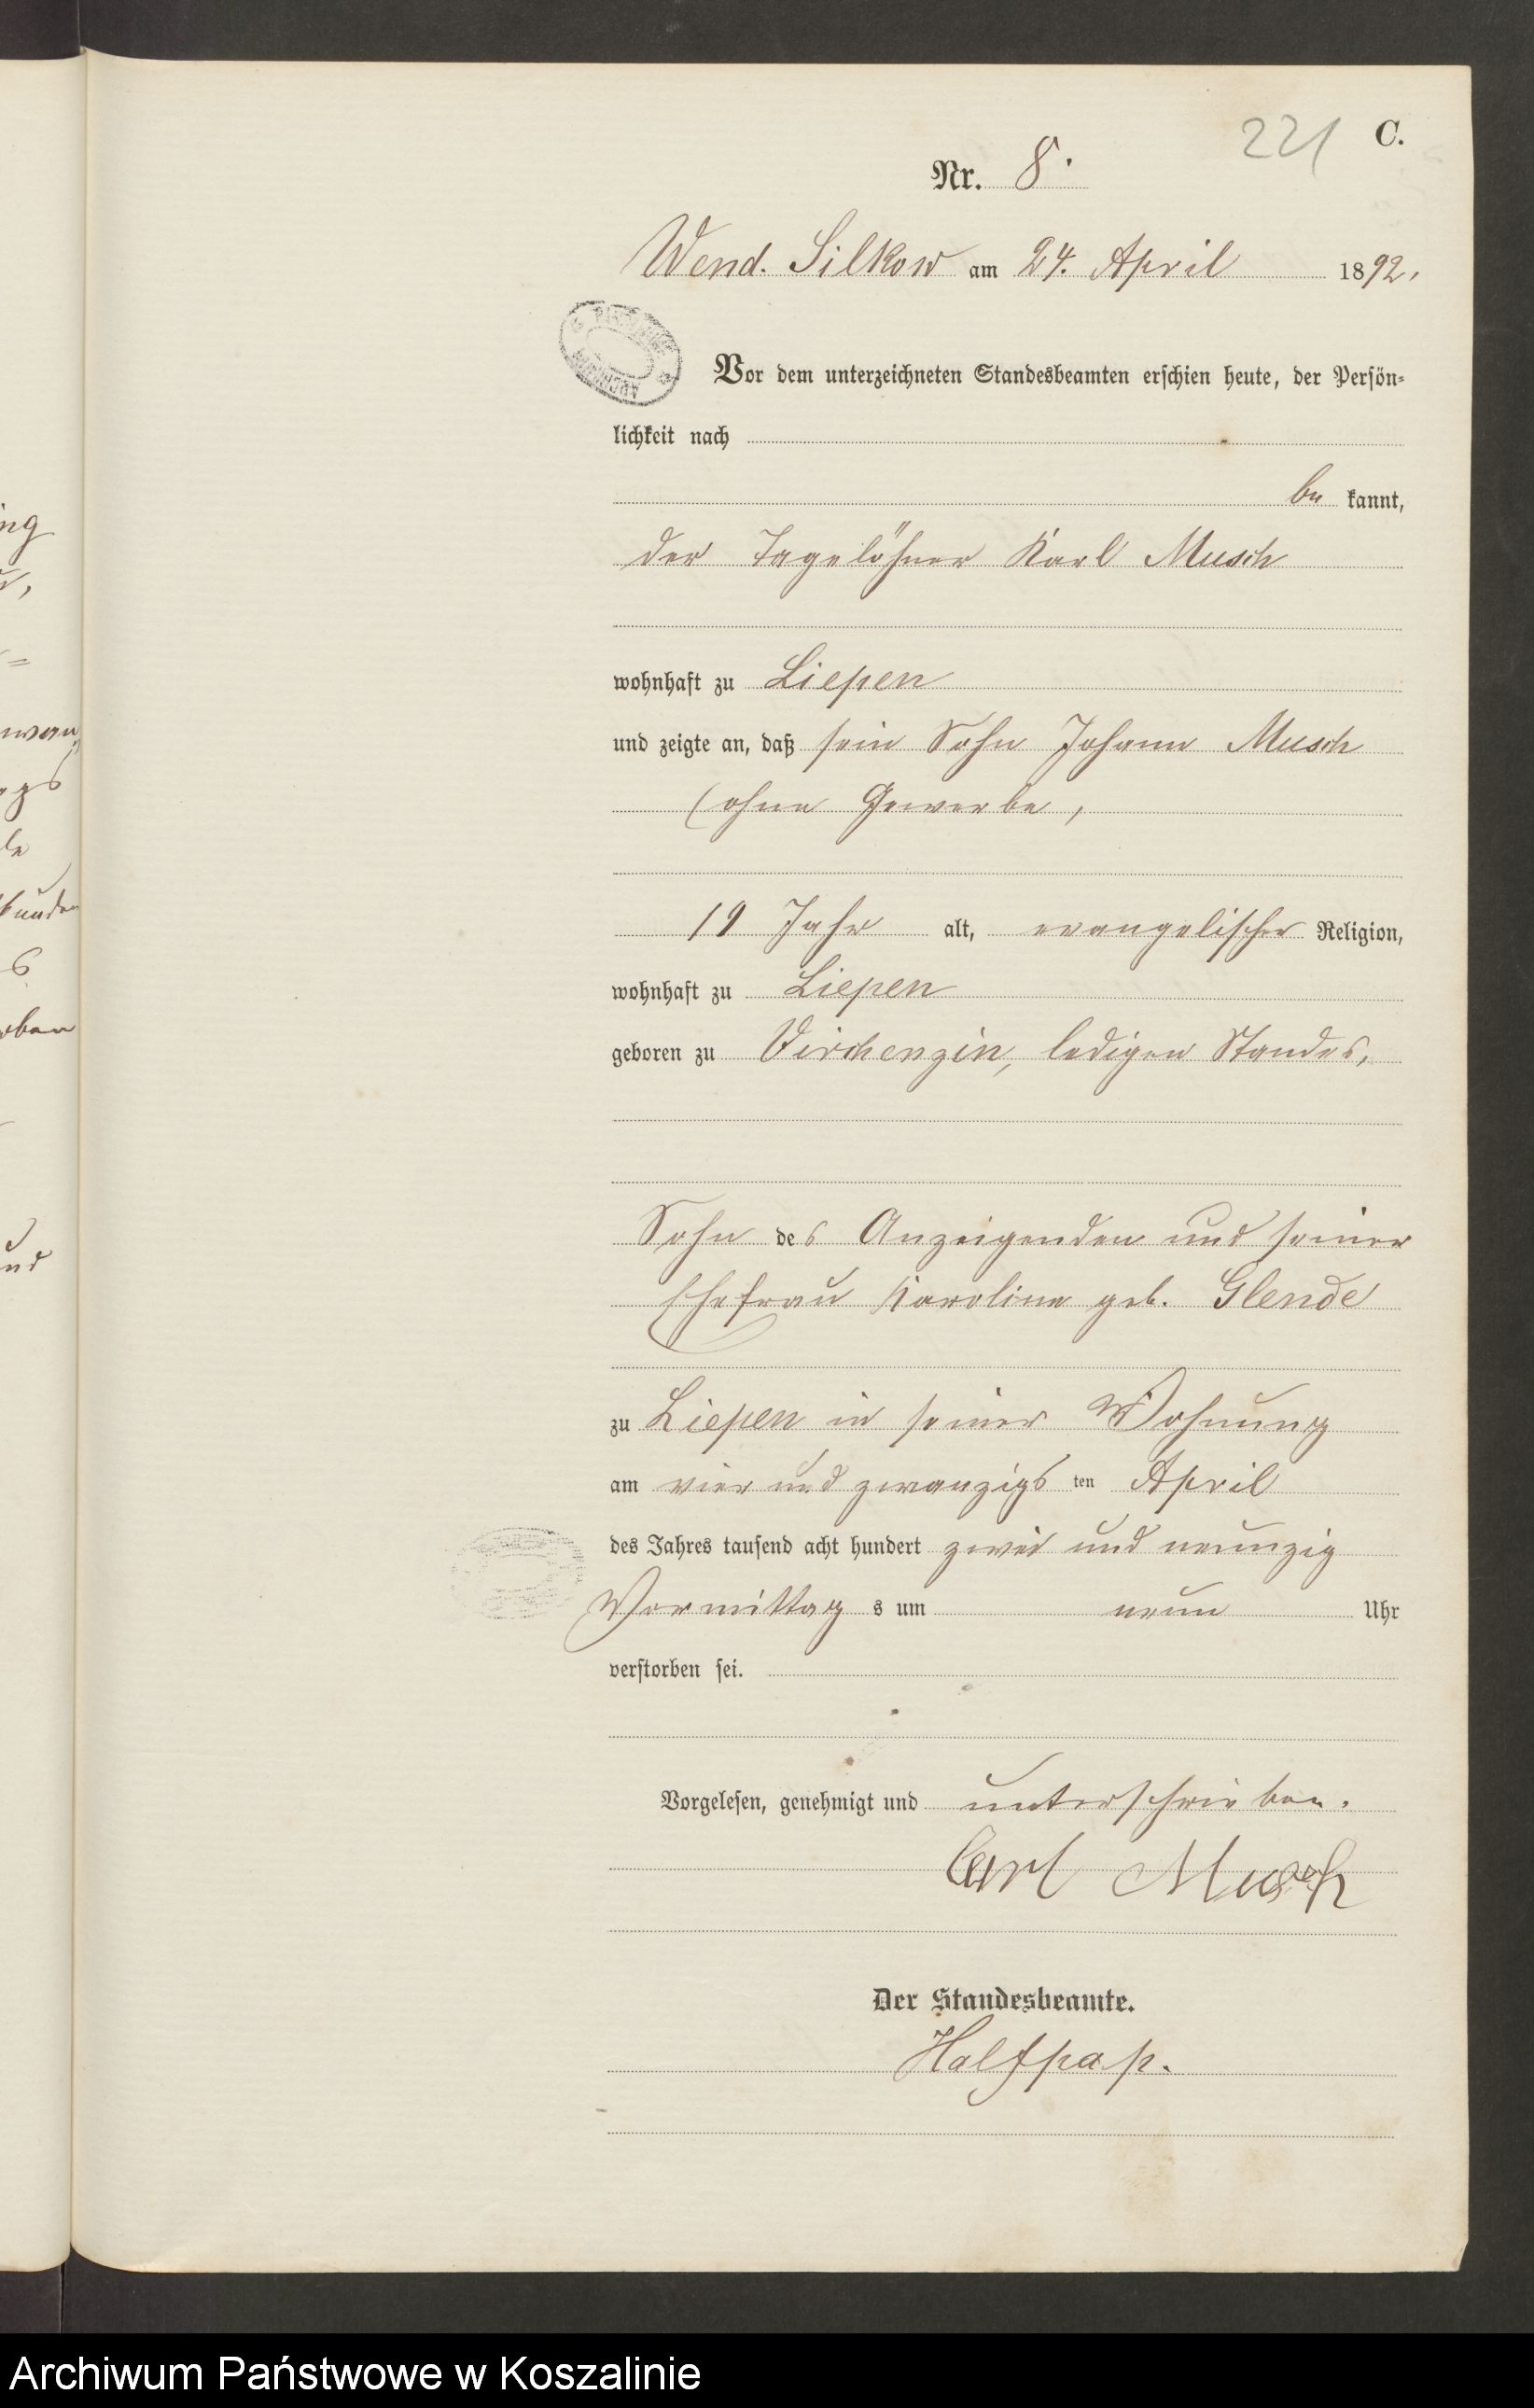 221 C.
Nr. 8.
Wend. Silkow am 24. April 1892.
Vor dem unterzeichneten Standesbeamten erschien heute, der Persön-
lichkeit nach
be kannt,
der Tagelöhner Karl Musch
wohnhaft zu Liepen
und zeigte an, daß sein Sohn Johann Musch
(ohne Gewerbe,
19 Jahr alt, evangelischer Religion,
wohnhaft zu Liepen
geboren zu Virchenzin, ledigen Standes,
Sohn des Anzeigenden und seiner
Ehefrau Karoline geb. Glende
zu Liepen in seiner Wohnung
am vier und zwanzigsten April
des Jahres tausend acht hundert zwei und neunzig
Vormittags um neun Uhr
verstorben sei.
Vorgelesen, genehmigt und unterschrieben.
Carl Musch
Der Standesbeamte.
Halfpap.
Archiwum Państwowe w Koszalinie